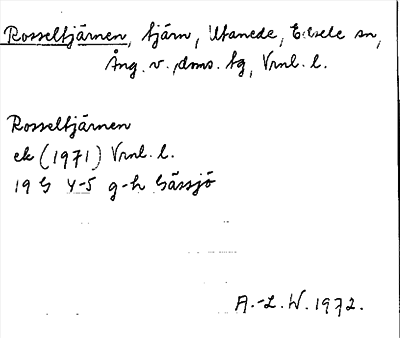 Rosseltjärnen, tjärn, Utanede, Edsele sn,
Ång. v. doms. tg, Vrnl. l.
Rosseltjärnen
ek (1971) Vrnl. l.
19 G 4-5 g-h Gåssjö
A.-L. W. 1972.